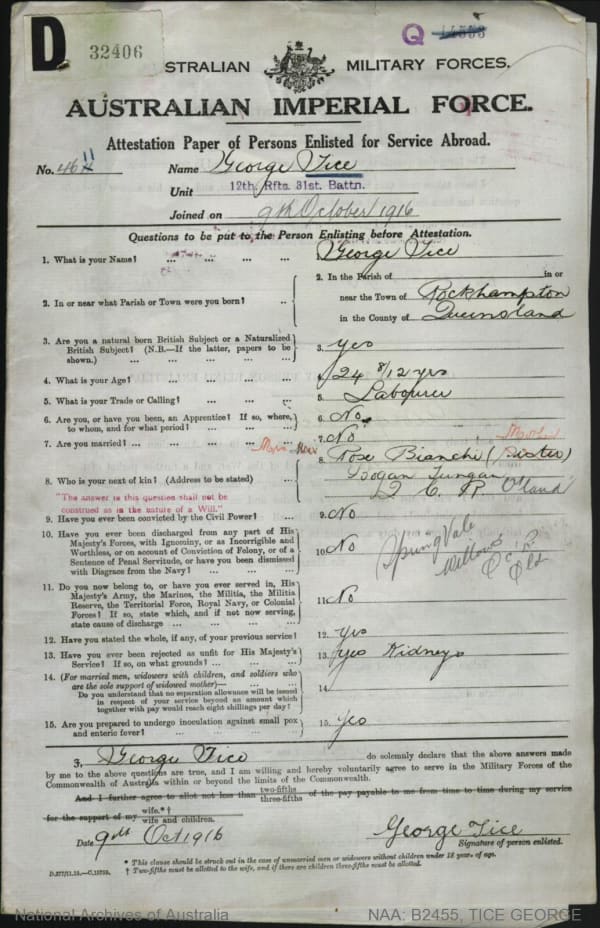 D
32406
Q
STRALIAN MILITARY FORCES.
AUSTRALIAN IMPERIAL FORCE.
Attestation Paper of Persons Enlisted for Service Abroad.
No. Name George Tice
Unit 12th Rfts. 31st. Battn.
Joined on 9th October 1916
Questions to be put to the Person Enlisting before Attestation.
1. What is your Name? ... ... ... ... George Tice
2. In or near what Parish or Town were you born? ... 2. In the Parish of in or
near the Town of Rockhampton
in the County of Queensland
3. Are you a natural born British Subject or a Naturalized
British Subject? (N.B.—If the latter, papers to be
shown.) ... ... ... ... 3. Yes
4. What is your Age? ... ... ... ... 4. 24 8/12 yrs
5. What is your Trade or Calling? ... ... ... 5. Labourer
6. Are you, or have you been, an Apprentice? If so, where,
to whom, and for what period? ... ... ... 6. No
7. Are you married? ... ... ... ... ... 7. No
8. Who is your next of kin? (Address to be stated) ... 8. Rose Bianchi (Sister) Mother
Mrs
Bogan Tungan
Q C R Q'land
"The answer to this question shall not be
construed as in the nature of a Will."
9. Have you ever been convicted by the Civil Power? ... 9. No
10. Have you ever been discharged from any part of His
Majesty's Forces, with Ignominy, or as Incorrigible and
Worthless, or on account of Conviction of Felony, or of a
Sentence of Penal Servitude, or have you been dismissed
with Disgrace from the Navy? ... ... 10. No
Spring Vale
Willows
Q C R
Qld
11. Do you now belong to, or have you ever served in, His
Majesty's Army, the Marines, the Militia, the Militia
Reserve, the Territorial Force, Royal Navy, or Colonial
Forces? If so, state which, and if not now serving,
state cause of discharge ... ... ... 11. No
12. Have you stated the whole, if any, of your previous service? 12. Yes
13. Have you ever been rejected as unfit for His Majesty's
Service? If so, on what grounds? ... ... 13. Yes Kidneys
14. (For married men, widowers with children, and soldiers who
are the sole support of widowed mother)— ... ...
Do you understand that no separation allowance will be issued
in respect of your service beyond an amount which
together with pay would reach eight shillings per day? 14
15. Are you prepared to undergo inoculation against small pox
and enteric fever? ... ... ... ... 15. Yes
I, George Tice do solemnly declare that the above answers made
by me to the above questions are true, and I am willing and hereby voluntarily agree to serve in the Military Forces of the
Commonwealth of Australia within or beyond the limits of the Commonwealth.
And I further agree to allot not less than two-fifths three-fifths of the pay payable to me from time to time during my service
for the support of my wife.* † wife and children.
Date 9th Oct 1916 George Tice
Signature of person enlisted.
* This clause should be struck out in the case of unmarried men or widowers without children under 18 years of age.
† Two-fifths must be allotted to the wife, and if there are children three-fifths must be allotted.
National Archives of Australia NAA: B2455, TICE GEORGE